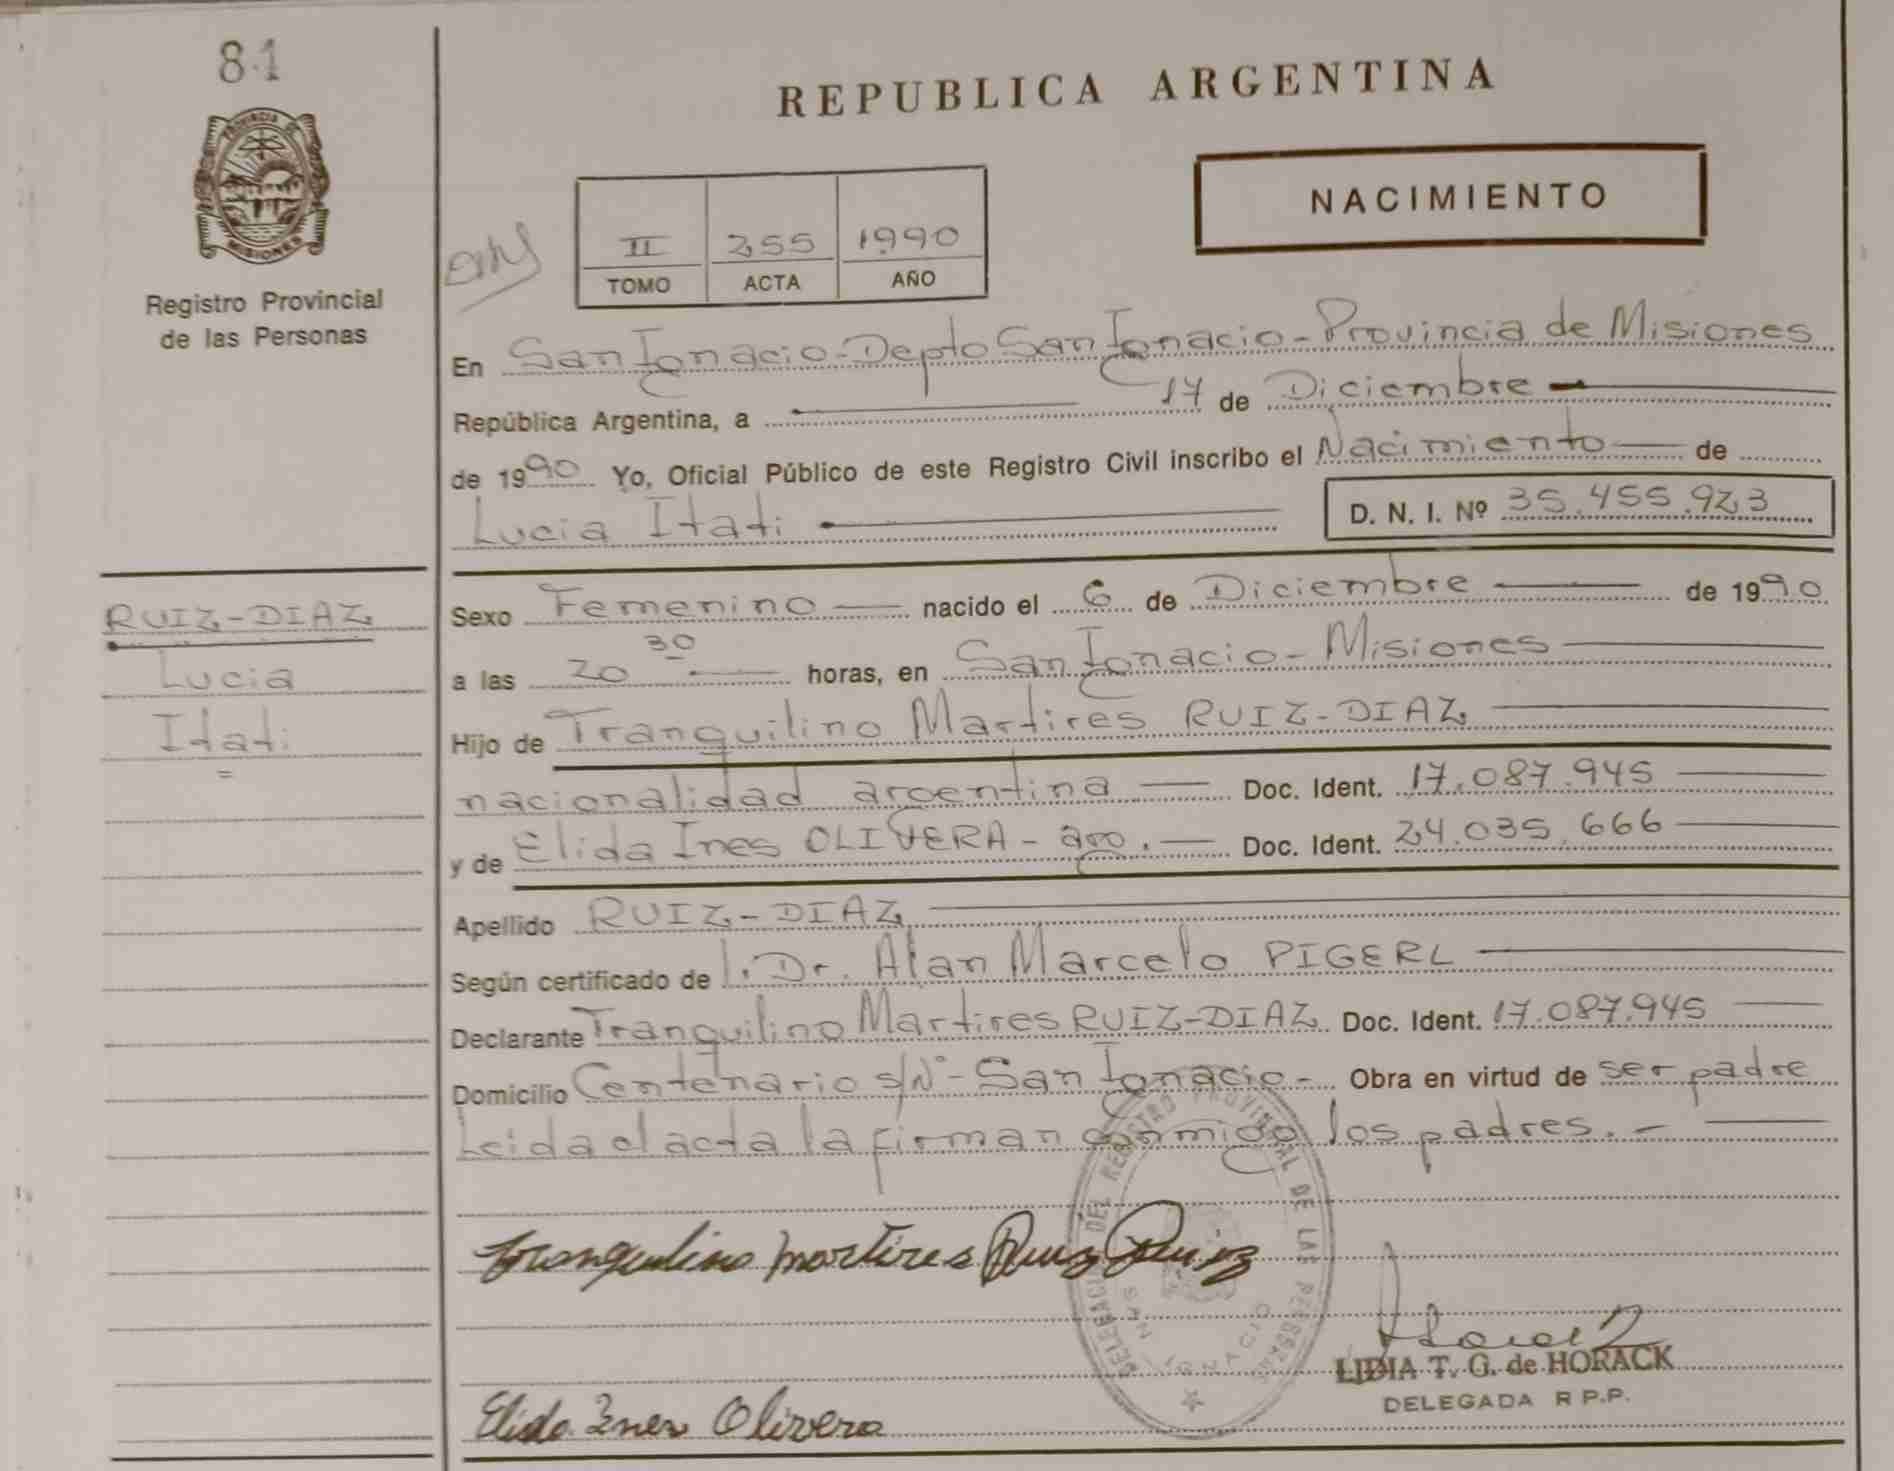 81
PROVINCIA DE
MISIONES
Registro Provincial
de las Personas
RUIZ-DIAZ
Lucia
Itati
REPUBLICA ARGENTINA
NACIMIENTO
II 255 1990
TOMO ACTA AÑO
En San Ignacio-Depto San Ignacio-Provincia de Misiones
República Argentina, a 17 de Diciembre
de 1990 Yo, Oficial Público de este Registro Civil inscribo el Nacimiento de
Lucia Itati D. N. I. Nº 35.455.923
Sexo Femenino nacido el 6 de Diciembre de 1990
a las 20 30 horas, en San Ignacio-Misiones
Hijo de Tranquilino Martires RUIZ-DIAZ
nacionalidad argentina Doc. Ident. 17.087.945
y de Elida Ines OLIVERA - arg. Doc. Ident. 24.035.666
Apellido RUIZ-DIAZ
Según certificado de l. Dr. Alan Marcelo PIGERL
Declarante Tranquilino Martires RUIZ-DIAZ Doc. Ident. 17.087.945
Domicilio Centenario s/Nº- San Ignacio- Obra en virtud de ser padre
Leida el acta la firman conmigo los padres.-
DELEGACION DEL REGISTRO PROVINCIAL DE LAS PERSONAS
SAN IGNACIO
Tranquilino martires Ruiz
LIDIA T. G. de HORACK
DELEGADA R P.P.
Elida Ines Olivera